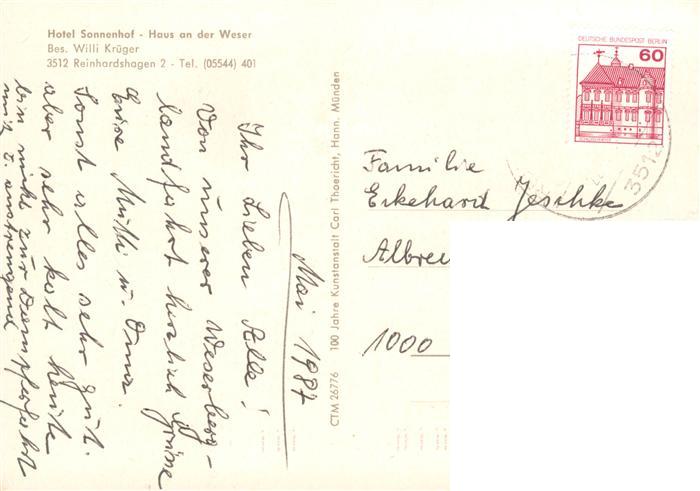 Hotel Sonnenhof - Haus an der Weser
Bes. Willi Krüger
3512 Reinhardshagen 2 - Tel. (05544) 401
Mai 1987
Ihr Lieben Alle!
Von unserer Weserberg-
landfahrt herzlich Grüsse
Eure Mutti u. Oma.
Sonst alles sehr gut.
aber sehr kalt heute
bin nicht zur Dampferfahrt
mit z. anstrengend
CTM 26776 100 Jahre Kunstanstalt Carl Thoericht, Hann. Münden
DEUTSCHE BUNDESPOST BERLIN
60
3512
Familie
Eckehard Jeschke
Albre
1000